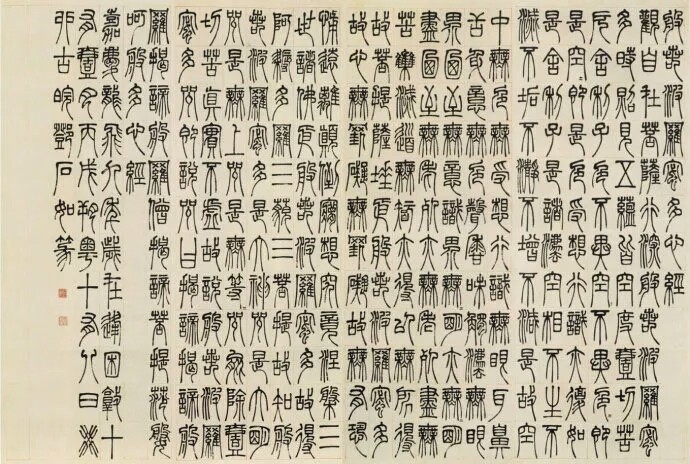 般若波羅蜜多心經
觀自在菩薩行深般若波羅蜜
多時照見五蘊皆空度一切苦
厄舍利子色不異空空不異色色即
是空空即是色受想行識亦復如
是舍利子是諸法空相不生不
滅不垢不淨不增不減是故空
中無色無受想行識無眼耳鼻
舌身意無色聲香味觸法無眼
界乃至無意識界無無明亦無無明
盡乃至無老死亦無老死盡無
苦集滅道無智亦無得以無所得
故菩提薩埵依般若波羅蜜多
故心無罣礙無罣礙故無有恐
怖遠離顛倒夢想究竟涅槃三
世諸佛依般若波羅蜜多故得
阿耨多羅三藐三菩提故知般
若波羅蜜多是大神咒是大明
咒是無上咒是無等等咒能除一
切苦真實不虛故說般若波羅
蜜多咒即說咒曰揭諦揭諦般
羅揭諦般羅僧揭諦菩提薩婆
呵般多心經
嘉慶龍飛九年歲在逢困敦十
有壹月丙戌朔粵十有八日癸
卯古皖鄧石如篆